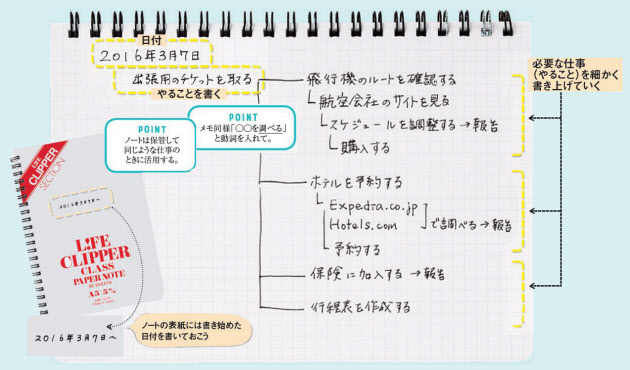 日付
2016年3月7日
出張用のチケットを取る
やることを書く
飛行機のルートを確認する
航空会社のサイトを見る
スケジュールを調整する→報告
購入する
必要な仕事
(やること)を細かく
書き上げていく
POINT
メモ同様「〇〇を調べる」
と動詞を入れて。
POINT
ノートは保管して
同じような仕事の
ときに活用する。
ホテルを予約する
Expedra.co.jp
Hotels.com
で調べる→報告
予約する
保険に加入する→報告
行程表を作成する
LIFE
CLIPPER
SECTION
2016年3月7日~
L!FE
CLIPPER
CLASS
PAPER NOTE
A5:5%
2016年3月7日~
ノートの表紙には書き始めた
日付を書いておこう